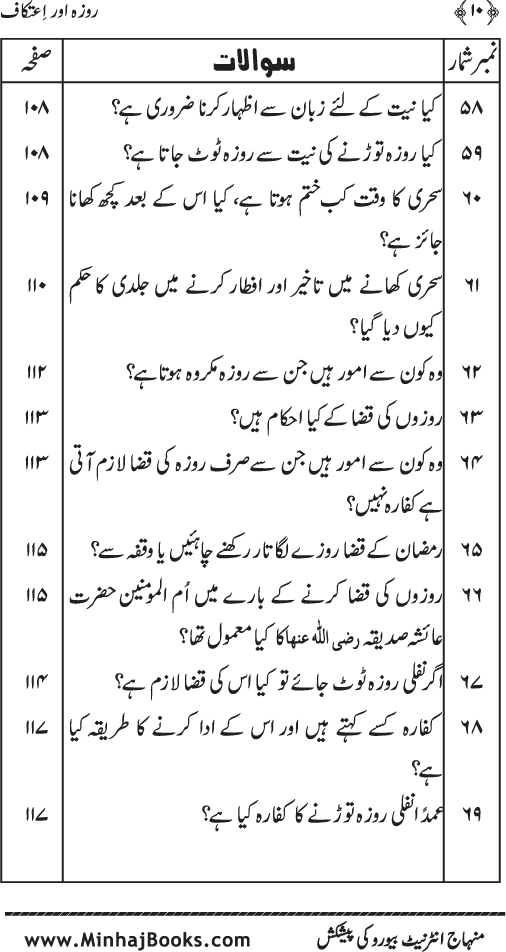 روزہ اور اِعتکاف ﴿۱۰﴾
نمبر شمار سوالات صفحہ
۵۸ کیا نیت کے لئے زبان سے اظہار کرنا ضروری ہے؟ ۱۰۸
۵۹ کیا روزہ توڑنے کی نیت سے روزہ ٹوٹ جاتا ہے؟ ۱۰۸
۶۰ سحری کا وقت کب ختم ہوتا ہے، کیا اس کے بعد کچھ کھانا ۱۰۹
جائز ہے؟
۶۱ سحری کھانے میں تاخیر اور افطار کرنے میں جلدی کا حکم ۱۱۰
کیوں دیا گیا؟
۶۲ وہ کون سے امور ہیں جن سے روزہ مکروہ ہوتا ہے؟ ۱۱۲
۶۳ روزوں کی قضا کے کیا احکام ہیں؟ ۱۱۳
۶۴ وہ کون سے امور ہیں جن سے صرف روزہ کی قضا لازم آتی ۱۱۳
ہے کفارہ نہیں؟
۶۵ رمضان کے قضا روزے لگاتار رکھنے چاہئیں یا وقفہ سے؟ ۱۱۵
۶۶ روزوں کی قضا کرنے کے بارے میں اُم المومنین حضرت ۱۱۵
عائشہ صدیقہ رضی اللہ عنھا کا کیا معمول تھا؟
۶۷ اگر نفلی روزہ ٹوٹ جائے تو کیا اس کی قضا لازم ہے؟ ۱۱۴
۶۸ کفارہ کسے کہتے ہیں اور اس کے ادا کرنے کا طریقہ کیا ۱۱۷
ہے؟
۶۹ عمدًا نفلی روزہ توڑنے کا کفارہ کیا ہے؟ ۱۱۷
منہاج انٹرنیٹ بیورو کی پیشکش www.MinhajBooks.com